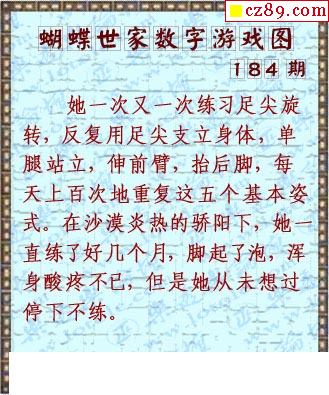 cz89.com
蝴蝶世家数字游戏图
184 期
她一次又一次练习足尖旋
转，反复用足尖支立身体，单
腿站立，伸前臂，抬后脚，每
天上百次地重复这五个基本姿
式。在沙漠炎热的骄阳下，她一
直练了好几个月，脚起了泡，浑
身酸疼不已，但是她从未想过
停下不练。